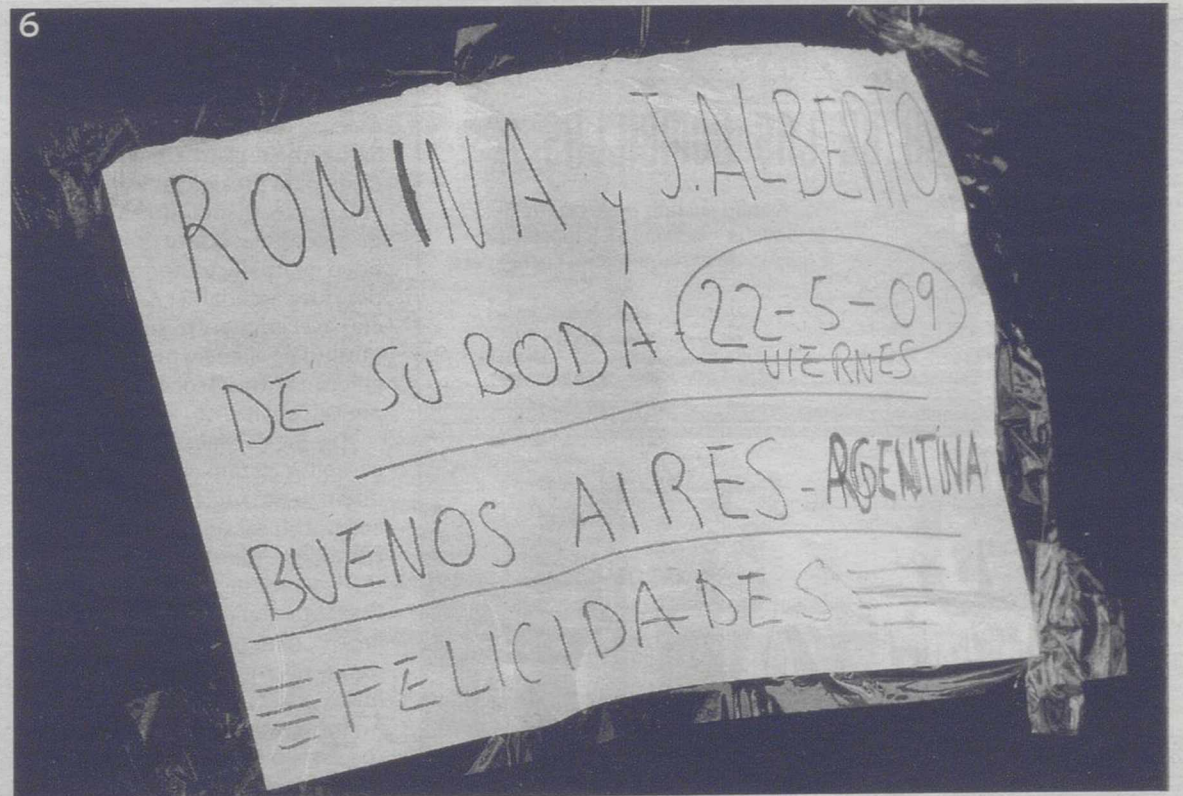 6
ROMINA y J.ALBERTO
DE SU BODA - 22-5-09
VIERNES
BUENOS AIRES - ARGENTINA
FELICIDADES